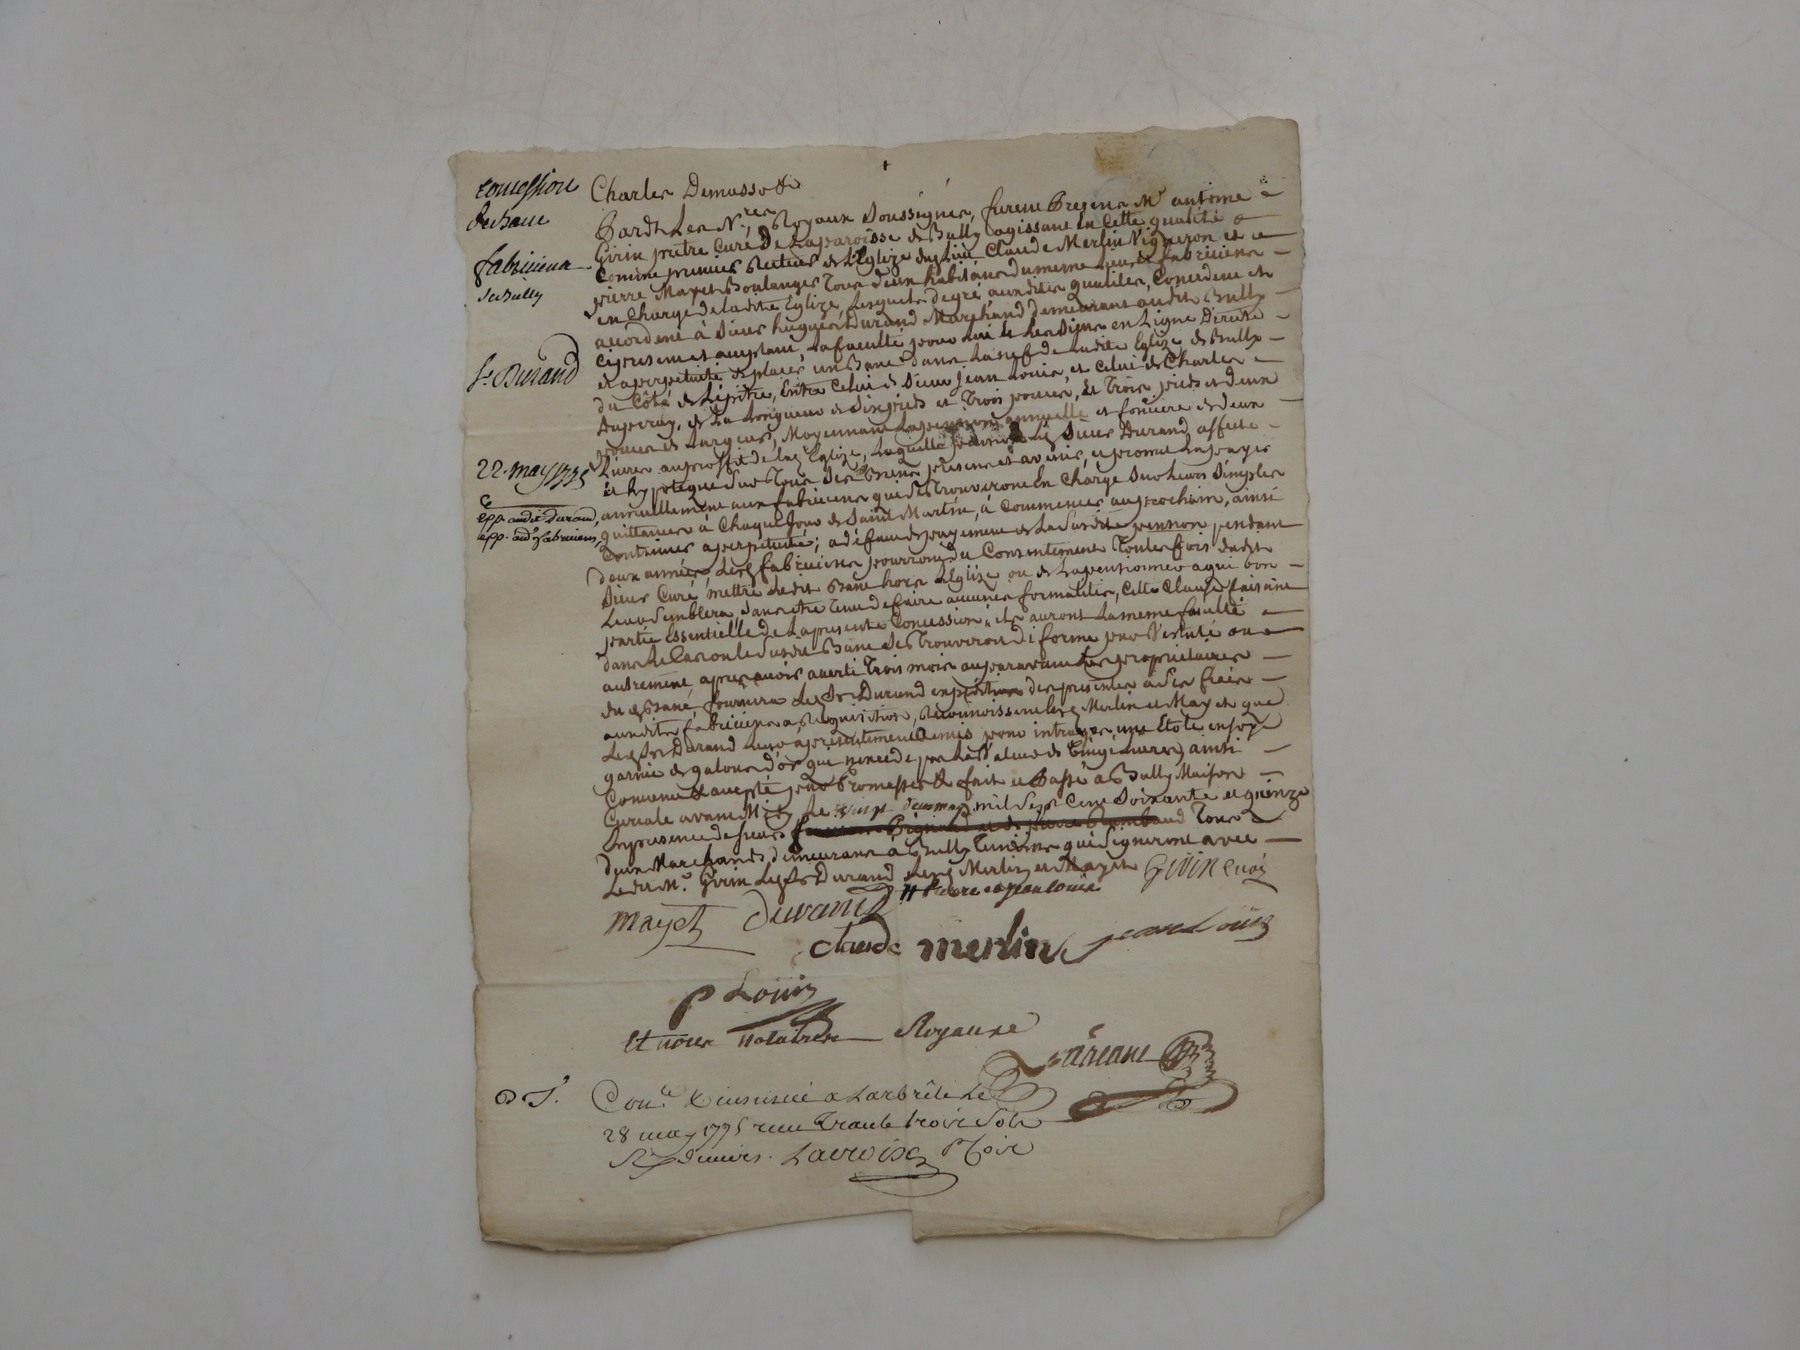 concession
de banc
fabriciens
de Bully
Sr Durand
22. may 1775
exp. audit Durand,
exp. audt fabriciens,
Charles Demasso &c
Pardt Les Nres Royaux Soussignés, furent Presens Mr antoine
Girin prêtre Curé De la paroisse de Bully agissant en Cette qualité &
Comme premier Recteur de L'Eglize dud Lieu Claude Merlin Vigneron et
pierre Mayet Boulanger Tous deux habitans du meme Lieu & fabriciens
en Charge de ladite Eglize, Lesquels de gré auxdites qualités, Concedent et
accordent à Sieur hugues Durand Marchand demeurant audit Bully
Cy present et acceptant, La faculté pour Lui & Les Siens en Ligne Directe
et a perpetuité de placer un Banc dans La nef de Ladite Eglize de Bully
du Côté de L'épitre, Entre Celui de Sieur jean Louis, et Celui de Charles
de La Longueur de Six pieds et Trois pouces, & Trois pieds et deux
pouces de Largeur, Moyennant La pension annuelle et fonciere de deux
Livres au proffit de Lad Eglize, Laquelle pension Led Sieur Durand affecte
& hypoteque Sur Tous Ses Biens presens et avenir, et promet La payer
annuellement aux fabriciens qui Se Trouveront En Charge Sur Leurs Simples
quittances à Chaque Jour de Saint Martin, à Commencer au prochain, ainsi
Continuer a perpetuité; a défaut de payement de La Susdite pension pendant
deux années, Lesd fabriciens pourront du Consentement Toutes fois dudit
Sieur Curé mettre Ledit Banc hors L'Eglize ou de La pensionner a qui bon
Leur Semblera, Sans être Tenu de faire aucunes formalités, Cette Clause faisant
partie Essentielle de La presente Concession; ils auront La meme faculté
dans Le Cas ou le Susdit Banc Se Trouveroit difforme par Vetusté ou
autrement, apres avoir averti Trois mois auparavant Les propriétaires
dud Banc, fournira Led Sr Durand expedition des presentes à Ses fraix
auxdits fabriciens a Requisition, Reconnoissent Lesd Merlin et Mayet que
Led Sr Durand Leur a presentement Remis pour introges une Etole en soye
garnie de galons d'or qui n'excede pas La Valeur de Vingt Livres; ainsi
Convenu & accepté par Promesses & fait et Passé a Bully Maison
Curiale avant Midy Le vingt deux may mil Sept Cent Soixante et quinze
En presence de sieurs Tous
deux Marchands demeurans à Bully Temoins qui Signeront avec
Ledit Mr. Girin Led Sr Durand Lesd Merlin et Mayet
pierre et jean Louis
Girin Curé
Mayet Durand
claude merlin jean Loüis
P Loüis
Et nous notaires Royaux
Conlé & insinué a Larbrêle Le
28 may 1775 reçu Trante trois Sols
Six deniers. Lacroix